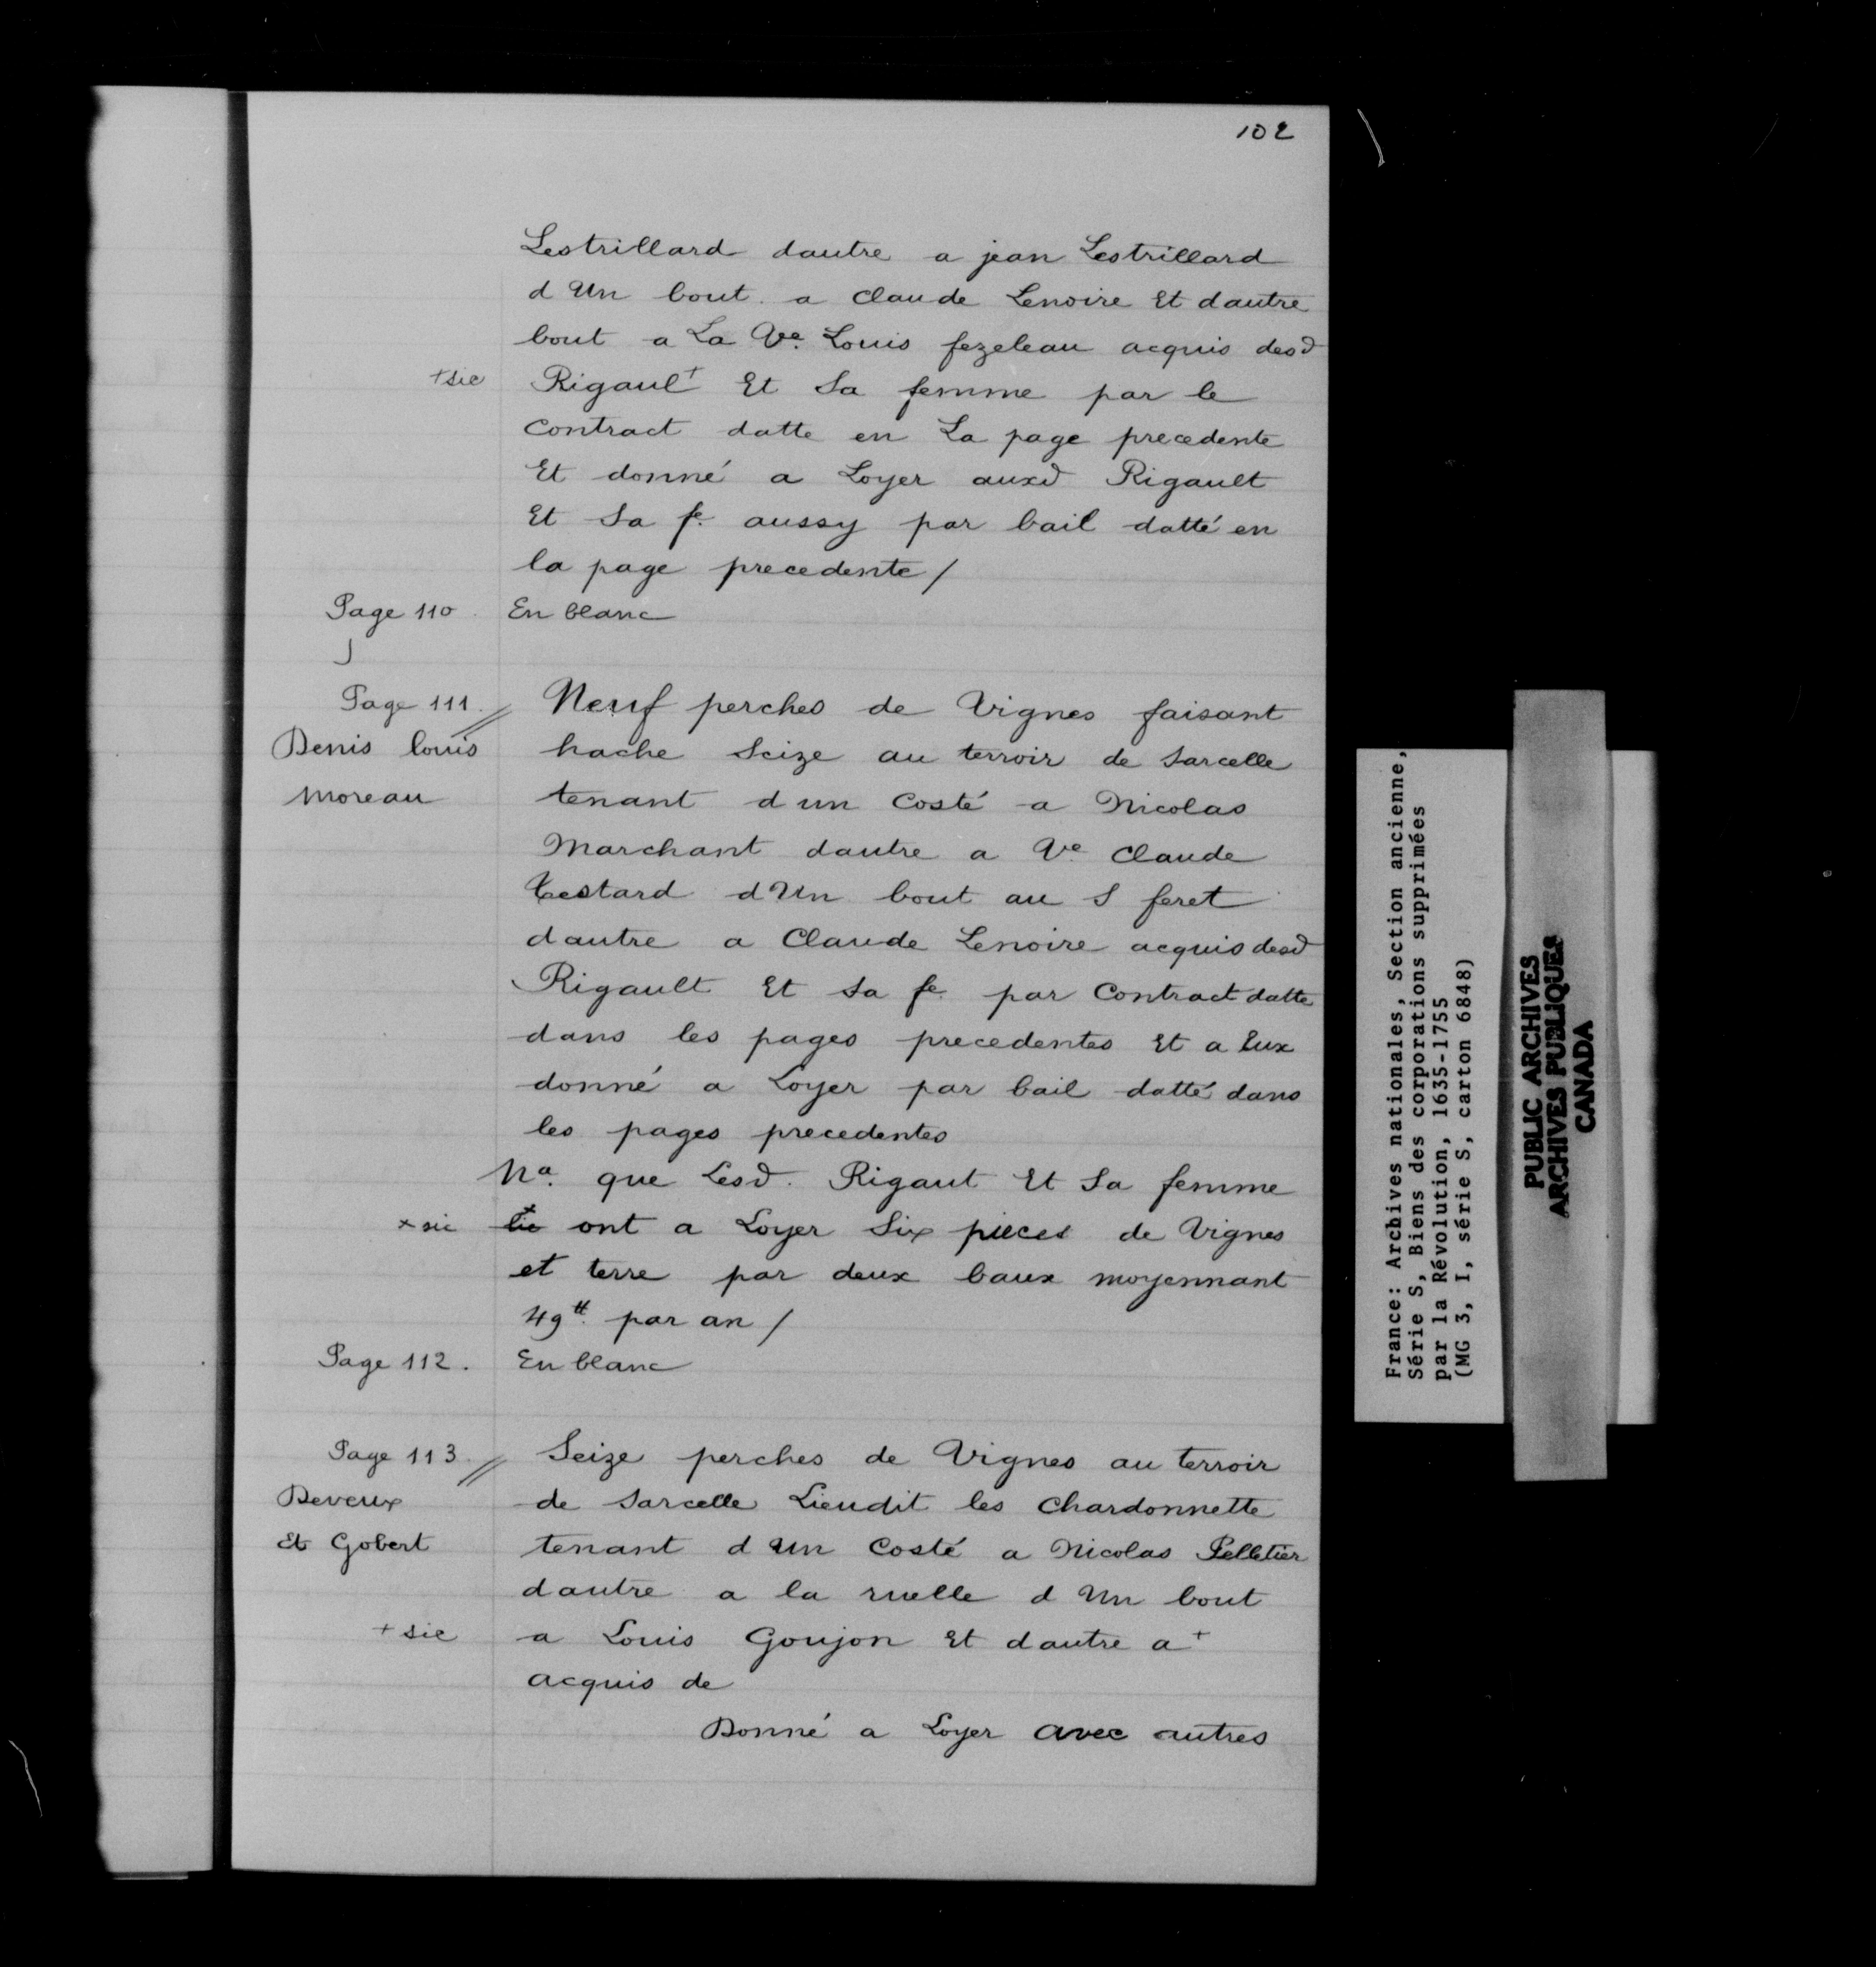 102
Lestrillard dautre a jean Lestrillard
d Un bout a Claude Lenoire Et dautre
bout a La Ve. Louis fezeleau acquis desd
+ sic Rigault+ Et Sa femme par le
contract datte en La page precedente
Et donné a Loyer auxd Rigault
Et Sa fe. aussy par bail datté en
la page precedente /
Page 110 En blanc
Page 111. // Neuf perches de Vignes faisant
Denis louis hache Seize au terroir de Sarcelle
Moreau tenant d un Costé a Nicolas
Marchant dautre a Ve Claude
Testard d Un bout au S feret
dautre a Claude Lenoire acquis desd
Rigault Et Sa fe. par Contract datte
dans les pages precedentes Et a Eux
donné a Loyer par bail datté dans
les pages precedentes
Na. que Lesd. Rigaut Et Sa femme
x sic ont a Loyer Six pieces de Vignes
et terre par deux baux moyennant
49tt. par an /
Page 112. En blanc
Page 113. // Seize perches de Vignes au terroir
Deveux de Sarcelle Lieudit les Chardonnette
Et Gobert tenant d Un Costé a Nicolas Pelletier
dautre a la ruelle d Un bout
+ sic a Louis Goujon Et dautre a+
acquis de
Donné a Loyer avec autres
France: Archives nationales, Section ancienne,
Série S, Biens des corporations supprimées
par la Révolution, 1635-1755
(MG 3, I, série S, carton 6848)
PUBLIC ARCHIVES
ARCHIVES PUBLIQUES
CANADA